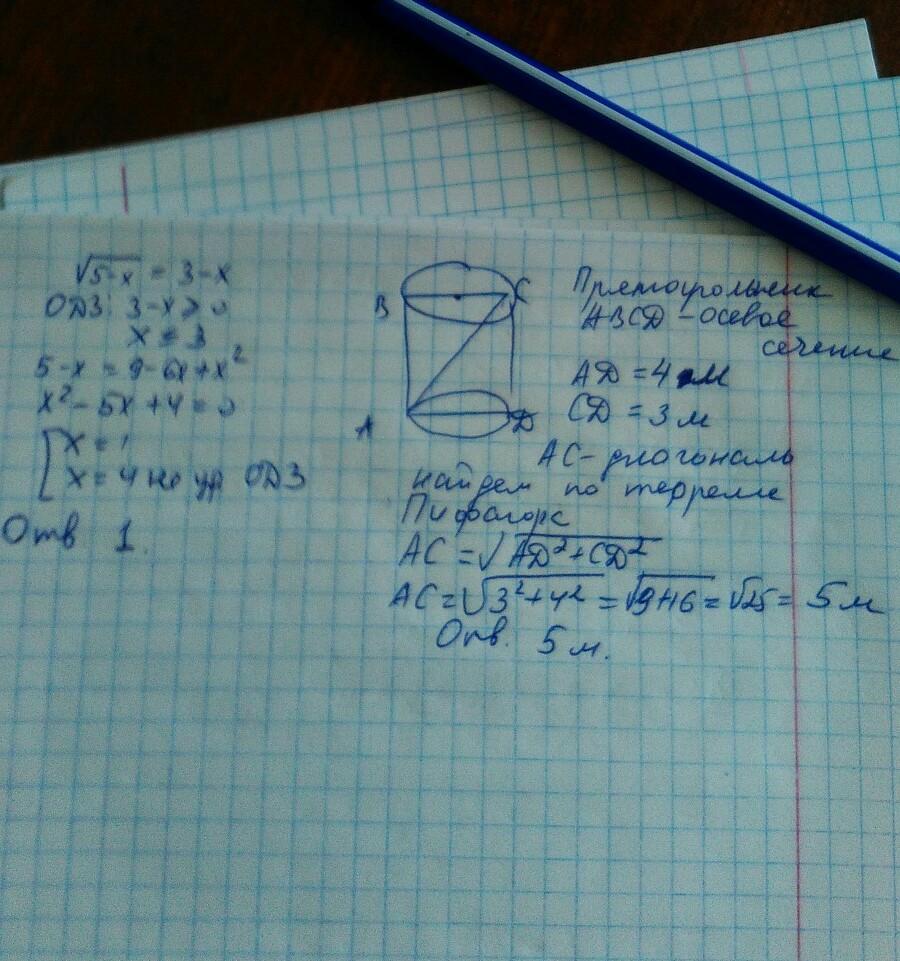 √5-x = 3-x
ОДЗ: 3-x ≥ 0
x ≤ 3
5-x = 9-6x+x²
x²-5x+4=0
[x=1
x=4 не уд ОДЗ
Отв 1.
B
C
A
D
Прямоугольник
ABCD - осевое
сечение
AD = 4 м
CD = 3 м
AC - диогональ
найдем по терреме
Пифагора
AC = √AD²+CD²
AC = √3²+4² = √9+16 = √25 = 5 м
Отв. 5 м.